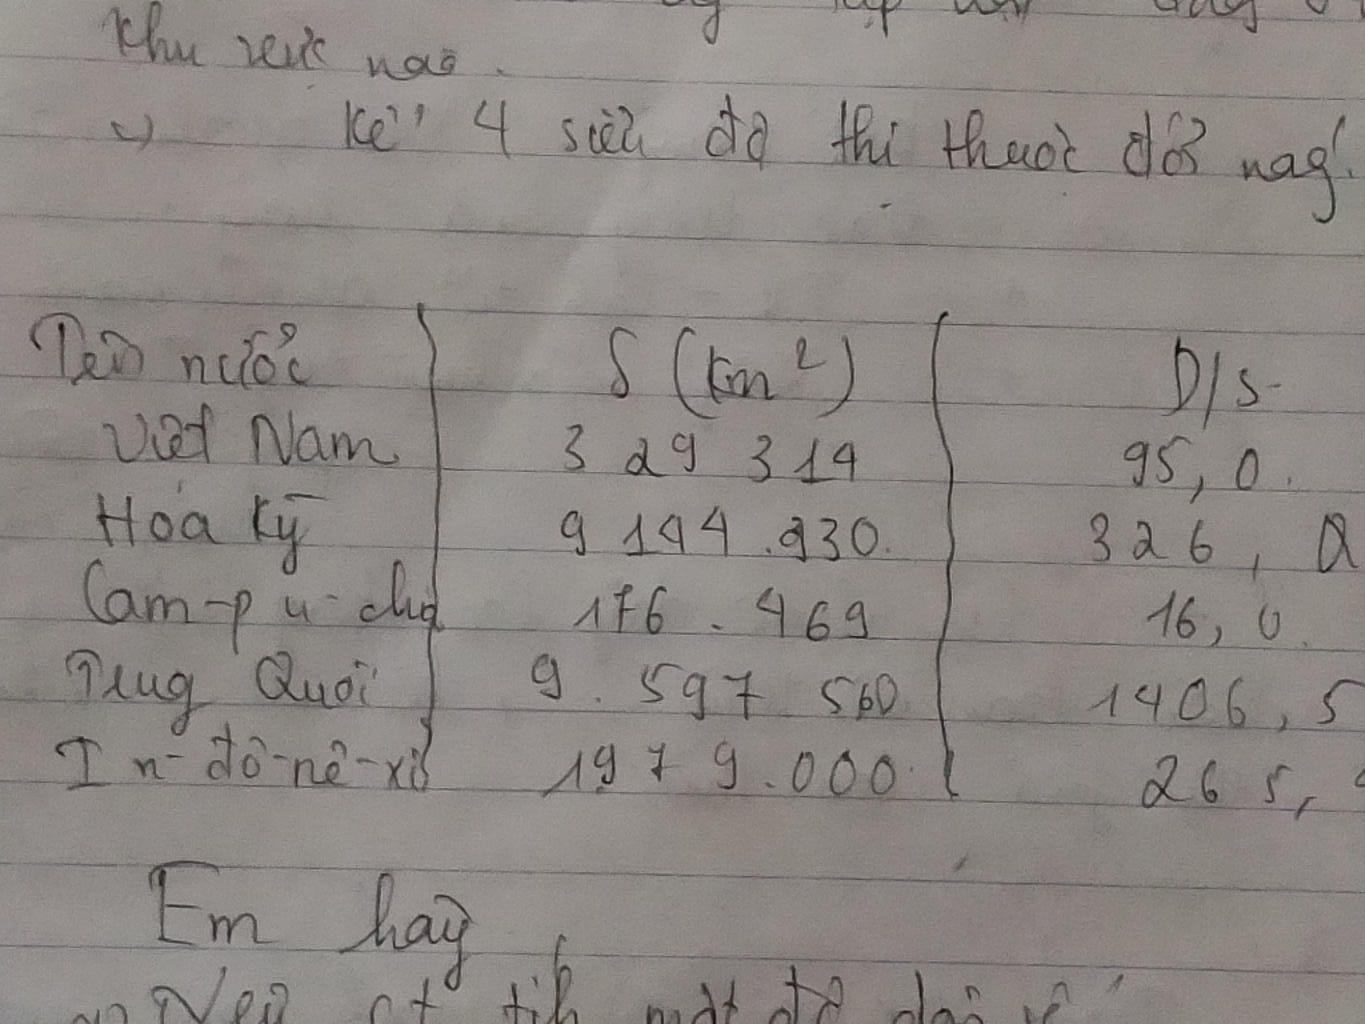 khu vực nào.
c) Kể 4 siêu đô thị thuộc đới này.
Tên nước S (km²) D/s
Việt Nam 329 314 95,0.
Hoa Kỳ 9 144.930. 326,
Cam-pu-chia 176.469 16,0.
Trung Quốc 9.597 560 1406,5
In-đô-nê-xia 1979.000. 265,
Em hãy
a) Nêu ct tính mật độ dân số